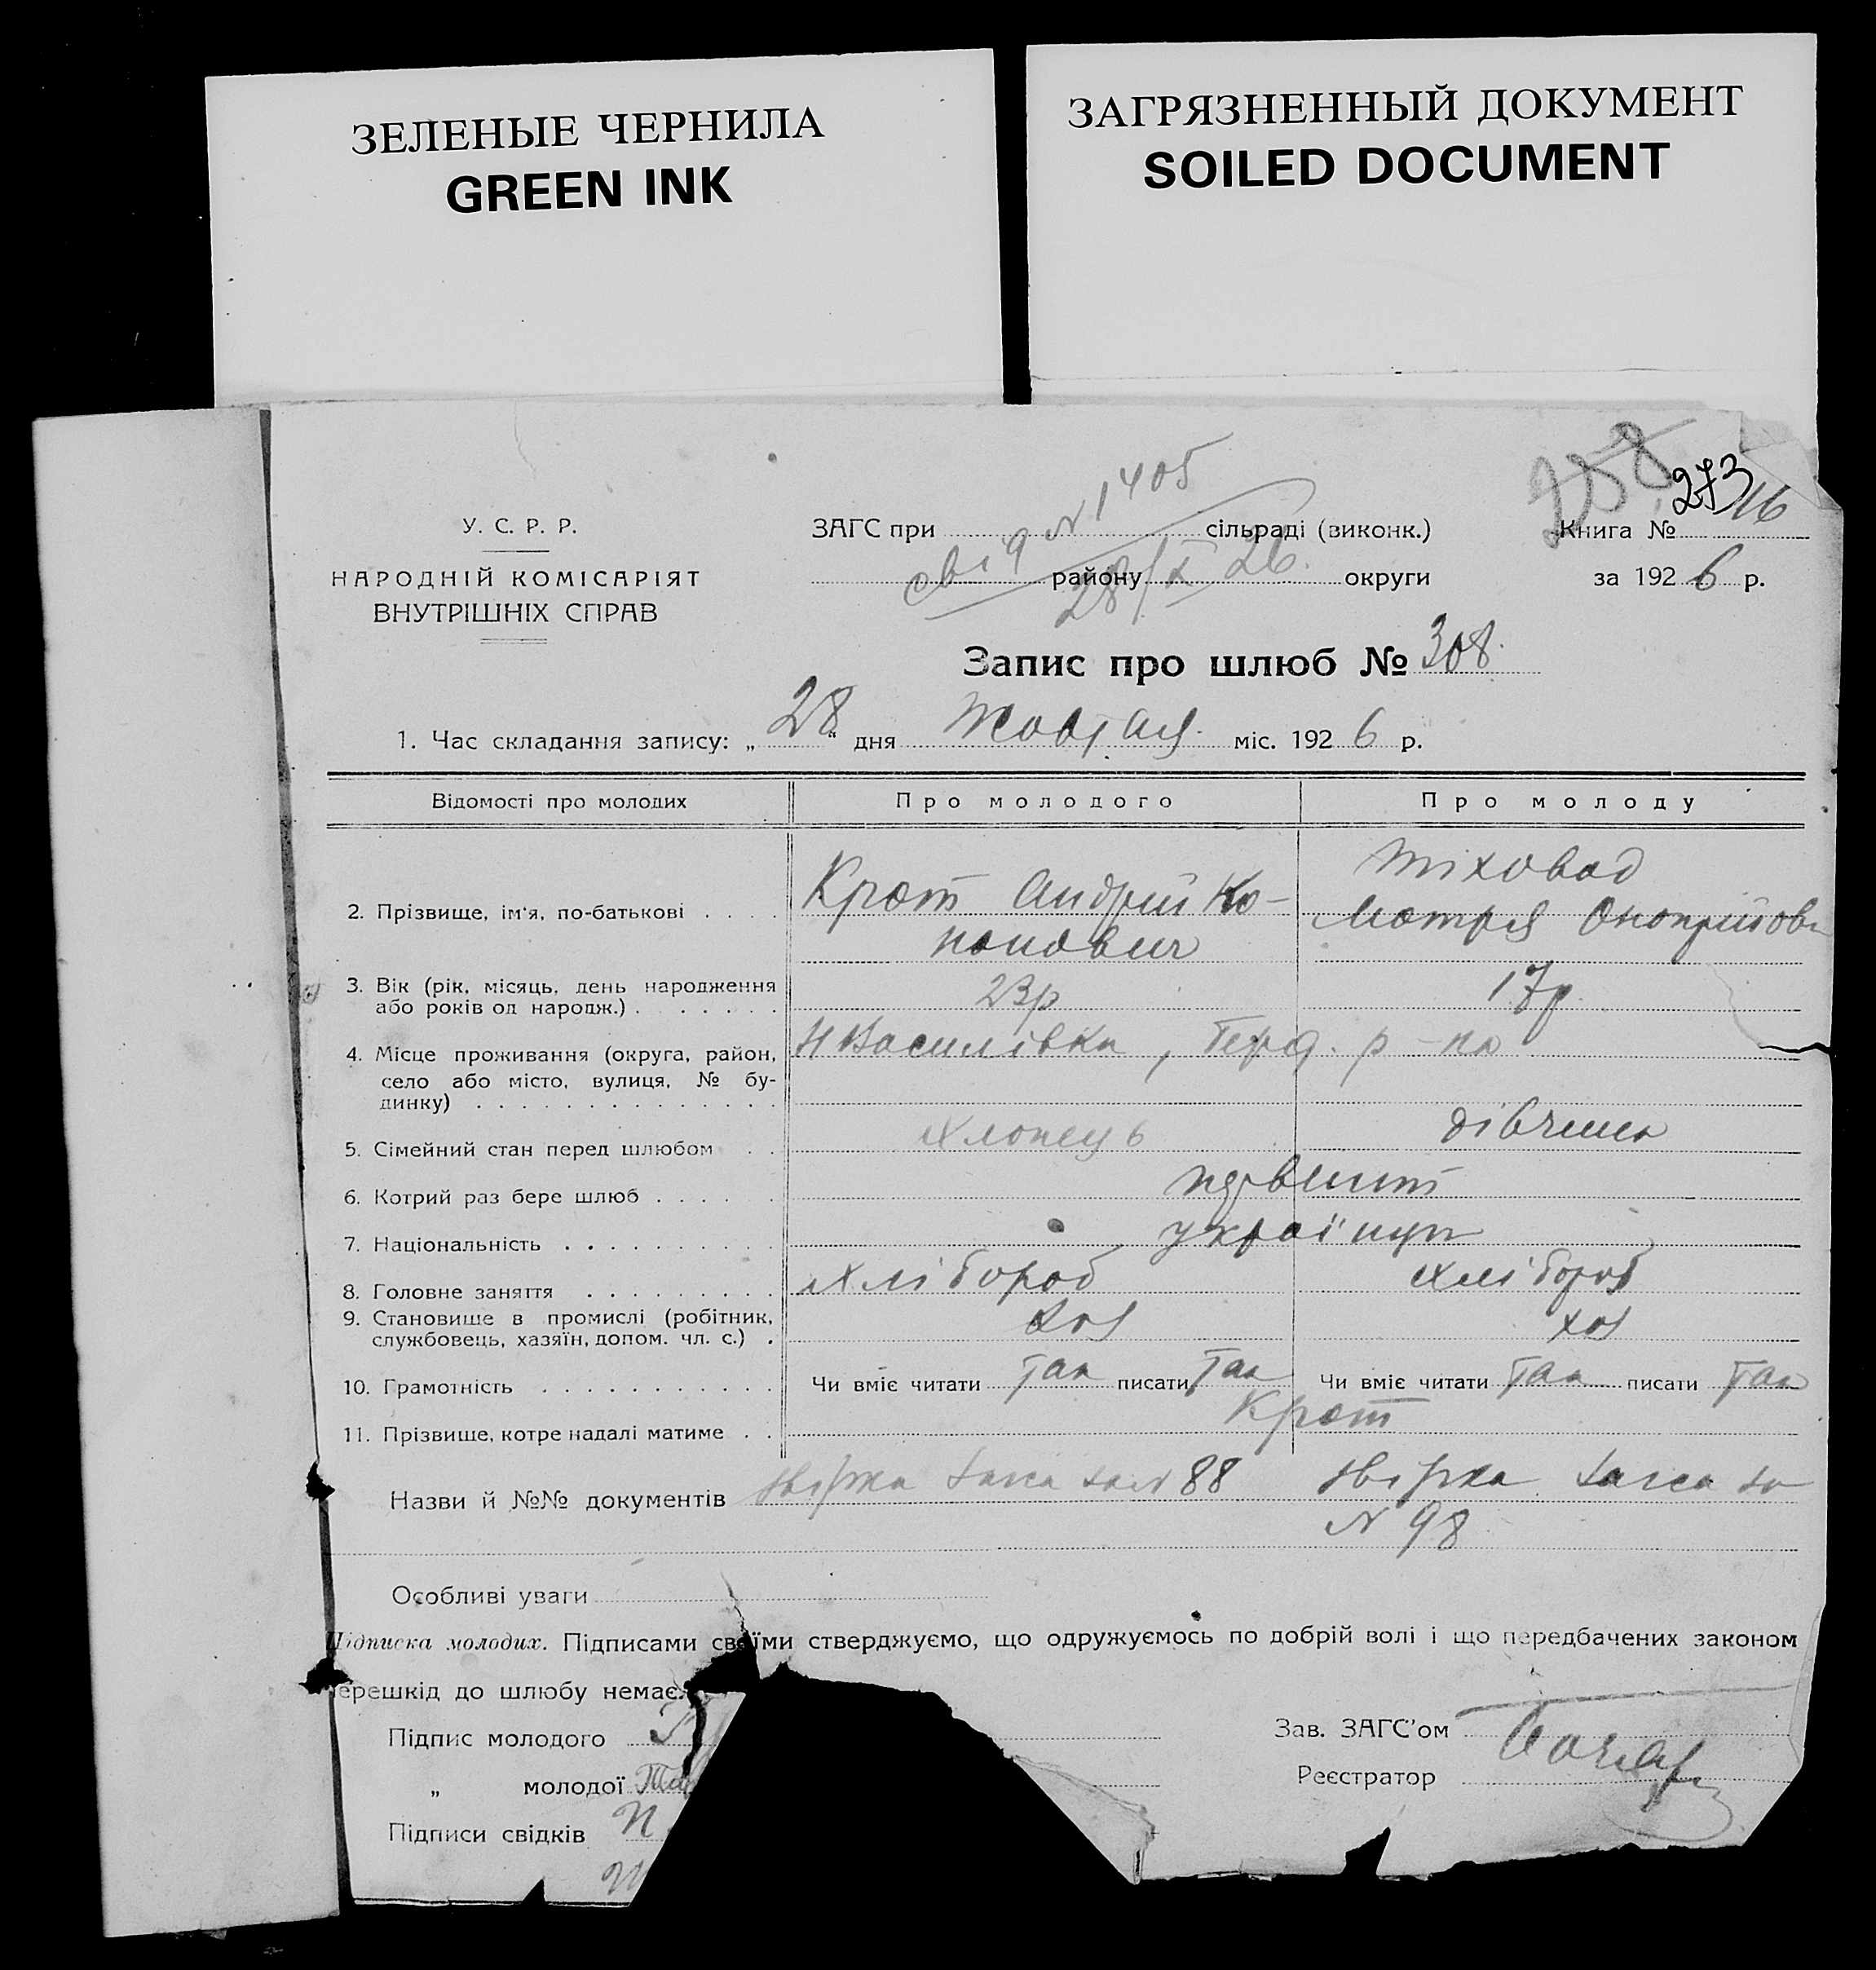 ЗЕЛЕНЫЕ ЧЕРНИЛА
GREEN INK
ЗАГРЯЗНЕННЫЙ ДОКУМЕНТ
SOILED DOCUMENT
258
273
16
У. С. Р. Р.
НАРОДНІЙ КОМІСАРІЯТ
ВНУТРІШНІХ СПРАВ
N 1405
ЗАГС при сільраді (виконк.)
району округи
28/X 26.
Книга №
за 192 6 р.
Запис про шлюб № 308.
1. Час складання запису: „ 28 “ дня Жовтня міс. 192 6 р.
Відомості про молодих Про молодого Про молоду
2. Прізвище, ім'я, по-батькові . . . .
Крот Андрій Ко-
нонович
Тіховод
Мотря Оноприйовн
3. Вік (рік, місяць, день народження
або років од народж.) . . . . . . .
23р 17р
4. Місце проживання (округа, район,
село або місто, вулиця, № бу-
динку) . . . . . . . . . . . . . .
Н Василівка, р-на
5. Сімейний стан перед шлюбом . . хлопець дівчина
6. Котрий раз бере шлюб . . . . . первий
7. Національність . . . . . . . . . українці
8. Головне заняття . . . . . . . . . хлібороб хлібороб
9. Становище в промислі (робітник,
службовець, хазяїн, допом. чл. с.) .
хоз хоз
10. Грамотність . . . . . . . . . . . Чи вміє читати так писати так Чи вміє читати так писати так
11. Прізвище, котре надалі матиме . . Крот
Назви й №№ документів звірка загса за N 88 звірка загса за
N 98
Особливі уваги
Підписка молодих. Підписами своїми стверджуємо, що одружуємось по добрій волі і що передбачених законом
перешкід до шлюбу немає.
Підпис молодого
„ молодої
Підписи свідків
Зав. ЗАГС'ом
Реєстратор